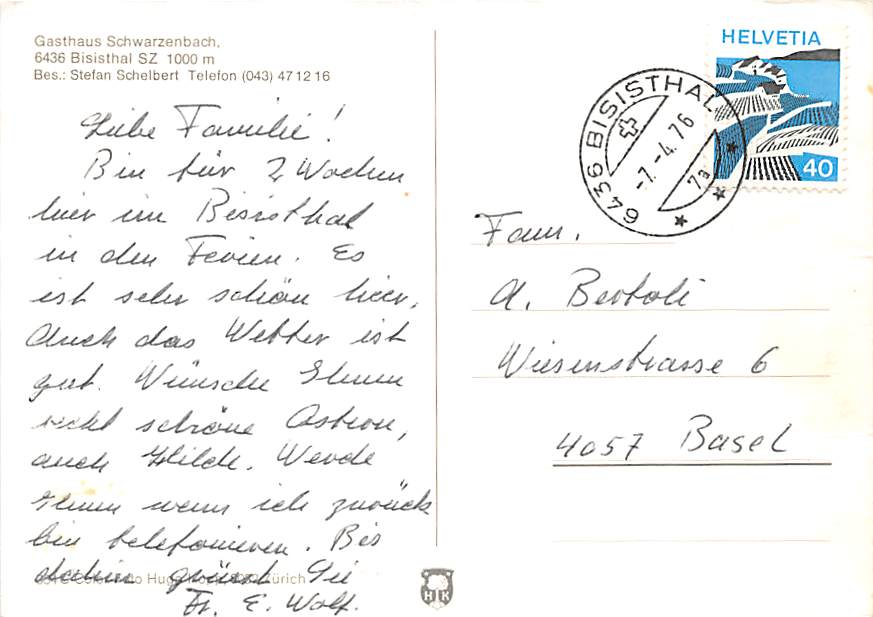 Gasthaus Schwarzenbach,
6436 Bisisthal SZ 1000 m
Bes.: Stefan Schelbert Telefon (043) 47 12 16
Liebe Familie!
Bin für 2 Wochen
hier im Bisisthal
in den Ferien. Es
ist sehr schön hier,
Auch das Wetter ist
gut. Wünsche Ihnen
recht schöne Ostern,
auch Hilde. Werde
Ihnen wenn ich zurück
bin telefonieren. Bis
dahin grüsst Sie
Fr. E. Wolf.
Hugo Zürich
HK
HELVETIA
40
6436 BISISTHAL
-7.-4.76
7a
Fam.
A. Bertoli
Wiesenstrasse 6
4057 Basel